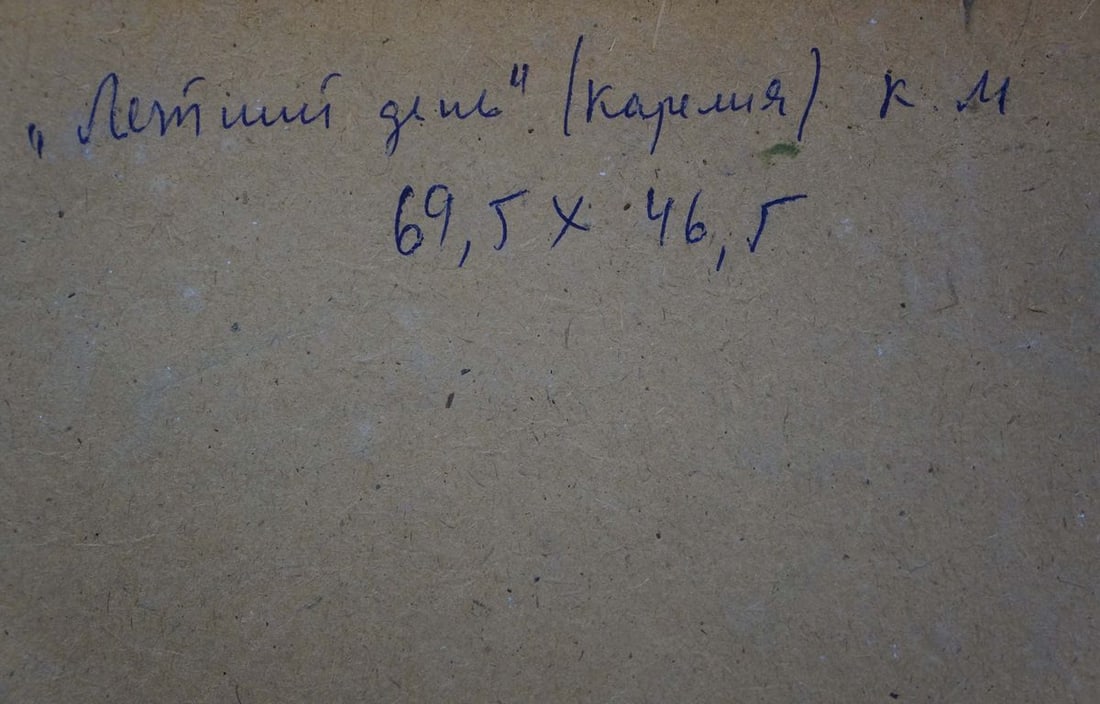 „Летний день" (Карелия) к м
69,5 х 46,5